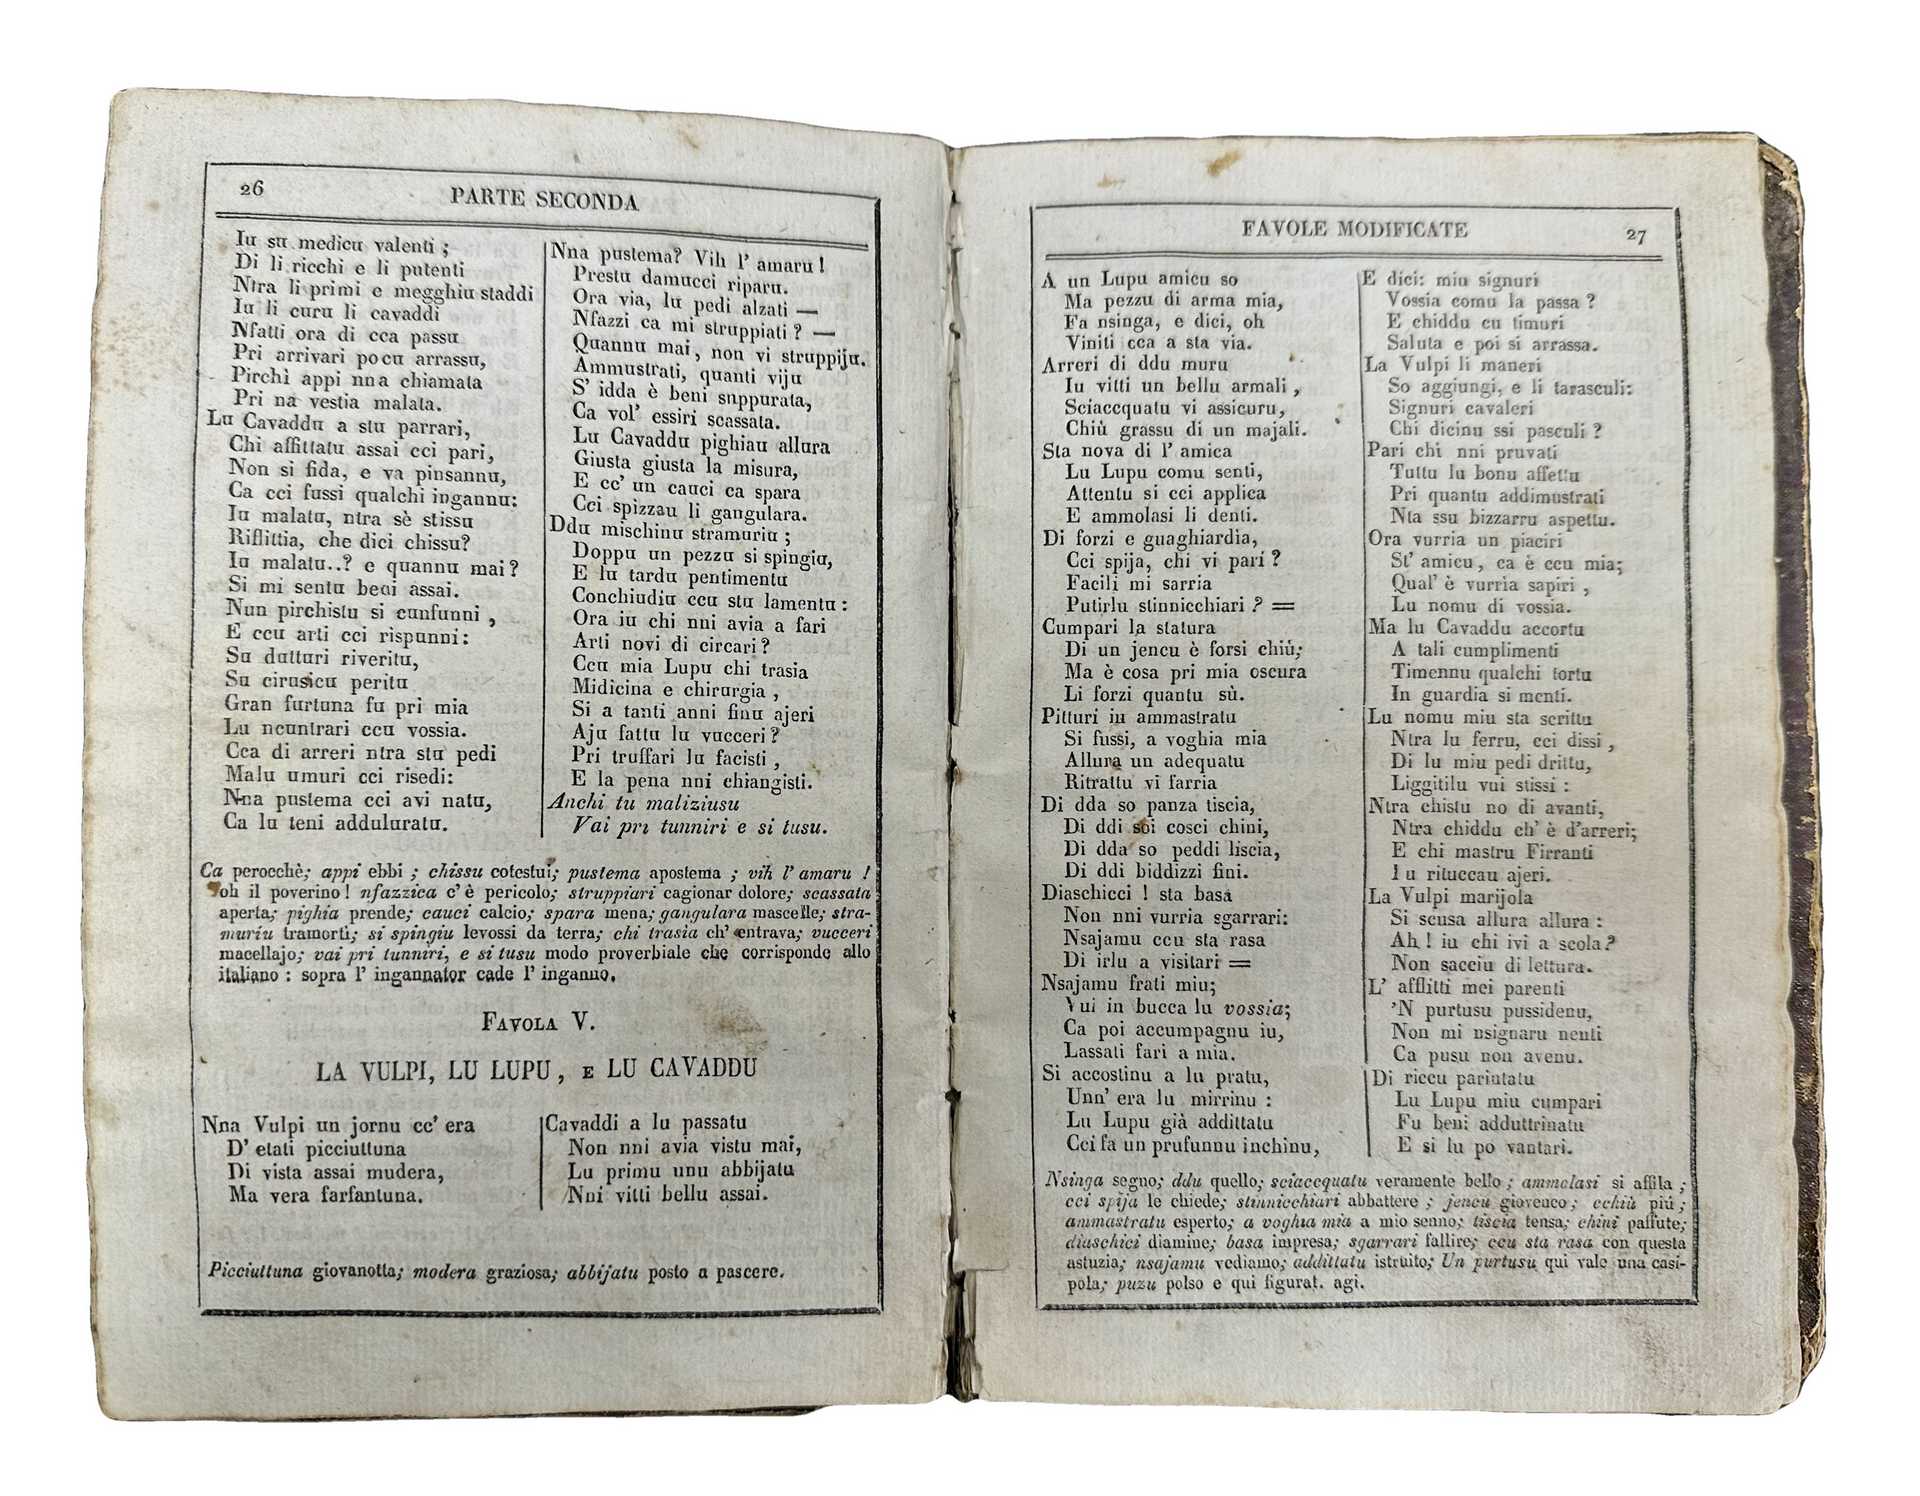 26
PARTE SECONDA
Iu su medicu valenti;
Di li ricchi e li putenti
Ntra li primi e megghiu staddi
Iu li curu li cavaddi
Nfatti ora di cca passu
Pri arrivari pocu arrassu,
Pirchì appi nna chiamata
Pri na vestia malata.
Lu Cavaddu a stu parrari,
Chi affittatu assai cci pari,
Non si fida, e va pinsannu,
Ca cci fussi qualchi ingannu:
Iu malatu, ntra sè stissu
Riflittia, che dici chissu?
Iu malatu..? e quannu mai?
Si mi sentu beni assai.
Nun pirchistu si cunfunni,
E ccu arti cci rispunni:
Su dutturi riveritu,
Su cirusicu peritu
Gran furtuna fu pri mia
Lu ncuntrari ccu vossia.
Cca di arreri ntra stu pedi
Malu umuri cci risedi:
Nna pustema cci avi natu,
Ca lu teni adduluratu.
Nna pustema? Vih l' amaru!
Prestu damucci riparu.
Ora via, lu pedi alzati —
Nfazzi ca mi struppiati? —
Quannu mai, non vi struppiju.
Ammustrati, quanti viju
S' idda è beni suppurata,
Ca vol' essiri scassata.
Lu Cavaddu pighiau allura
Giusta giusta la misura,
E cc' un cauci ca spara
Cci spizzau li gangulara.
Ddu mischinu stramuriu;
Doppu un pezzu si spingiu,
E lu tardu pentimentu
Conchiudiu ccu stu lamentu:
Ora iu chi nni avia a fari
Arti novi di circari?
Ccu mia Lupu chi trasia
Midicina e chirurgia,
Si a tanti anni finu ajeri
Aju fattu lu vucceri?
Pri truffari lu facisti,
E la pena nni chiangisti.
Anchi tu maliziusu
Vai pri tunniri e si tusu.
Ca perocchè; appi ebbi; chissu cotestui; pustema apostema; vih l' amaru!
oh il poverino! nfazzica c' è pericolo; struppiari cagionar dolore; scassata
aperta; pighia prende; cauci calcio; spara mena; gangulara mascelle; stra-
muriu tramortì; si spingiu levossi da terra; chi trasia ch' entrava; vucceri
macellajo; vai pri tunniri, e si tusu modo proverbiale che corrisponde allo
italiano: sopra l' ingannator cade l' inganno.
FAVOLA V.
LA VULPI, LU LUPU, E LU CAVADDU
Nna Vulpi un jornu cc' era
D' etati picciuttuna
Di vista assai mudera,
Ma vera farfantuna.
Cavaddi a lu passatu
Non nni avia vistu mai,
Lu primu unu abbijatu
Nni vitti bellu assai.
Picciuttuna giovanotta; modera graziosa; abbijatu posto a pascere.
FAVOLE MODIFICATE
27
A un Lupu amicu so
Ma pezzu di arma mia,
Fa nsinga, e dici, oh
Viniti cca a sta via.
Arreri di ddu muru
Iu vitti un bellu armali,
Sciaccquatu vi assicuru,
Chiù grassu di un majali.
Sta nova di l' amica
Lu Lupu comu senti,
Attentu si cci applica
E ammolasi li denti.
Di forzi e guaghiardia,
Cci spija, chi vi parì?
Facili mi sarria
Putirlu stinnicchiari? =
Cumpari la statura
Di un jencu è forsi chiù;
Ma è cosa pri mia oscura
Li forzi quantu sù.
Pitturi iu ammastratu
Si fussi, a voghia mia
Allura un adequatu
Ritrattu vi farria
Di dda so panza tiscia,
Di ddi soi cosci chini,
Di dda so peddi liscia,
Di ddi biddizzi fini.
Diaschicci! sta basa
Non nni vurria sgarrari:
Nsajamu ccu sta rasa
Di irlu a visitari =
Nsajamu frati miu;
Vui in bucca lu vossia;
Ca poi accumpagnu iu,
Lassati fari a mia.
Si accostinu a lu pratu,
Unn' era lu mirrinu:
Lu Lupu già addittatu
Cci fa un prufunnu inchinu,
E dici: miu signuri
Vossia comu la passa?
E chiddu cu timuri
Saluta e poi si arrassa.
La Vulpi li maneri
So aggiungi, e li tarasculi:
Signuri cavaleri
Chi dicinu ssi pasculi?
Pari chi nni pruvati
Tuttu lu bonu affettu
Pri quantu addimustrati
Nta ssu bizzarru aspettu.
Ora vurria un piaciri
St' amicu, ca è ccu mia;
Qual' è vurria sapiri,
Lu nomu di vossia.
Ma lu Cavaddu accortu
A tali cumplimenti
Timennu qualchi tortu
In guardia si menti.
Lu nomu miu sta scrittu
Ntra lu ferru, cci dissi,
Di lu miu pedi drittu,
Liggitilu vui stissi:
Ntra chistu no di avanti,
Ntra chiddu ch' è d'arreri;
E chi mastru Firranti
Iu rituccau ajeri.
La Vulpi marijola
Si scusa allura allura:
Ah! iu chi ivi a scola?
Non sacciu di lettura.
L' afflitti mei parenti
'N purtusu pussidenu,
Non mi nsignaru nenti
Ca pusu non avenu.
Di riccu pariutatu
Lu Lupu miu cumpari
Fu beni adduttrinatu
E si lu po vantari.
Nsinga segno; ddu quello; sciaccquatu veramente bello; ammolasi si affila;
cci spija le chiede; stinnicchiari abbattere; jencu giovenco; cchiù più;
ammastratu esperto; a voghia mia a mio senno; tiscia tensa; chini paffute;
diaschici diamine; basa impresa; sgarrari fallire; ccu sta rasa con questa
astuzia; nsajamu vediamo; addittatu istruito; Un purtusu qui vale una casi-
pola; puzu polso e qui figurat. agi.